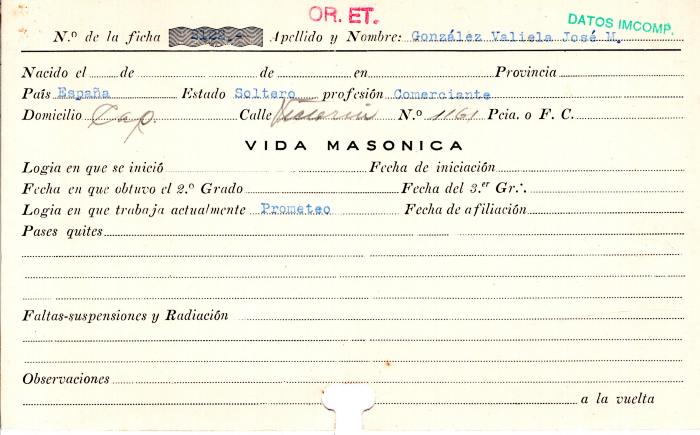 OR. ET.
DATOS IMCOMP.
N.º de la ficha 2122.- Apellido y Nombre: González Valiela José M.
Nacido el de de en Provincia
País España Estado Soltero profesión Comerciante
Domicilio Cap. Calle Victoria N.º 1161 Pcia. o F. C.
VIDA MASONICA
Logia en que se inició Fecha de iniciación
Fecha en que obtuvo el 2.º Grado Fecha del 3.er Gr∴
Logia en que trabaja actualmente Prometeo Fecha de afiliación
Pases quites
Faltas-suspensiones y Radiación
Observaciones
a la vuelta